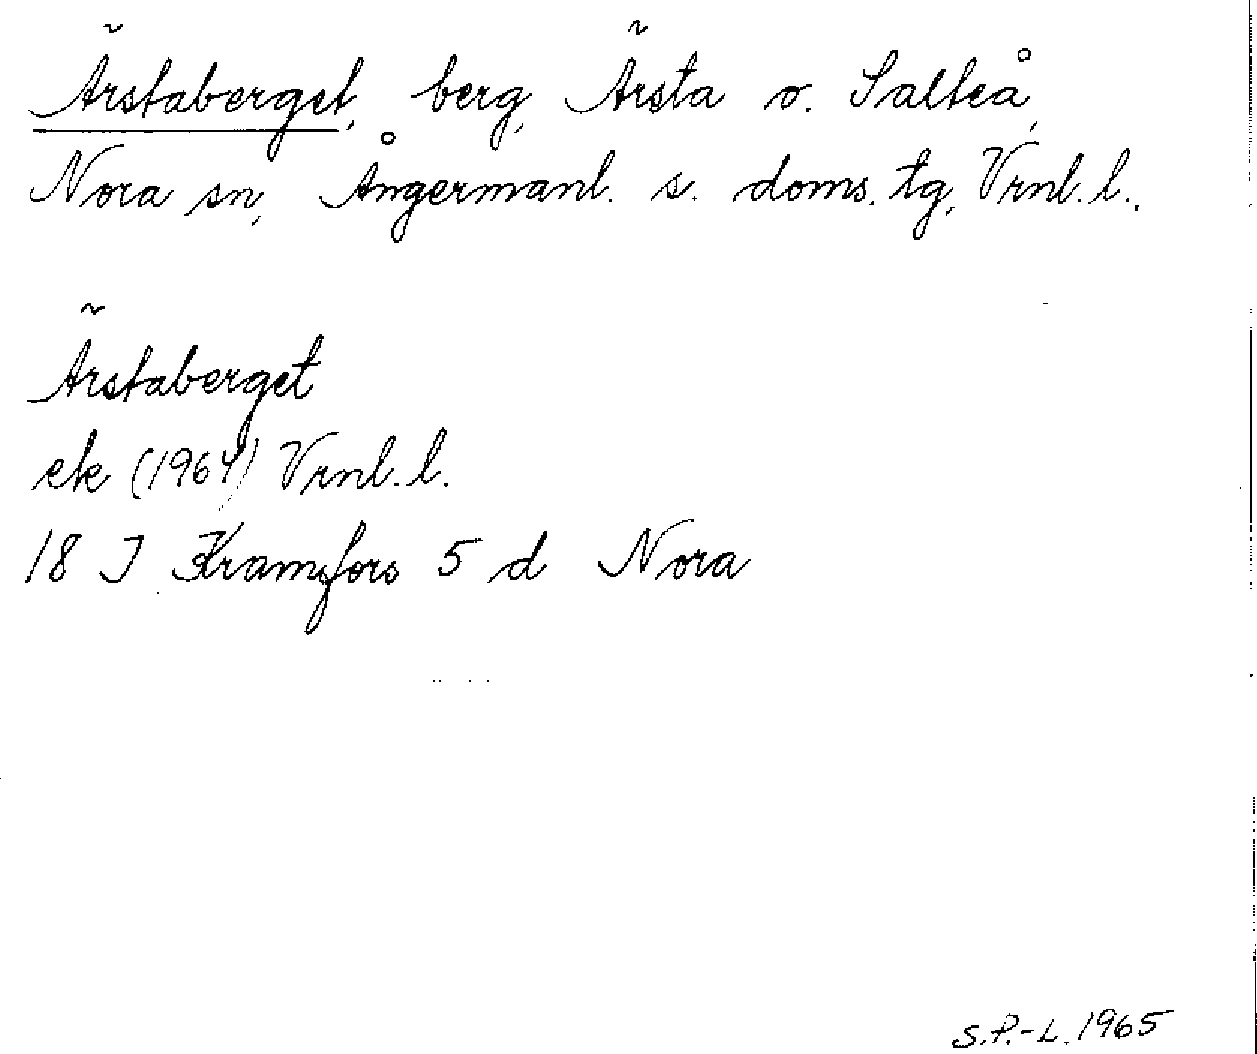 Ärstaberget, berg, Ärsta o. Salteå,
Nora sn, Ångermanl. s. doms. tg, Vrnl. l.,
Ärstaberget
ek (1964) Vrnl. l.
18 J Kramfors 5 d Nora
S.P.-L. 1965